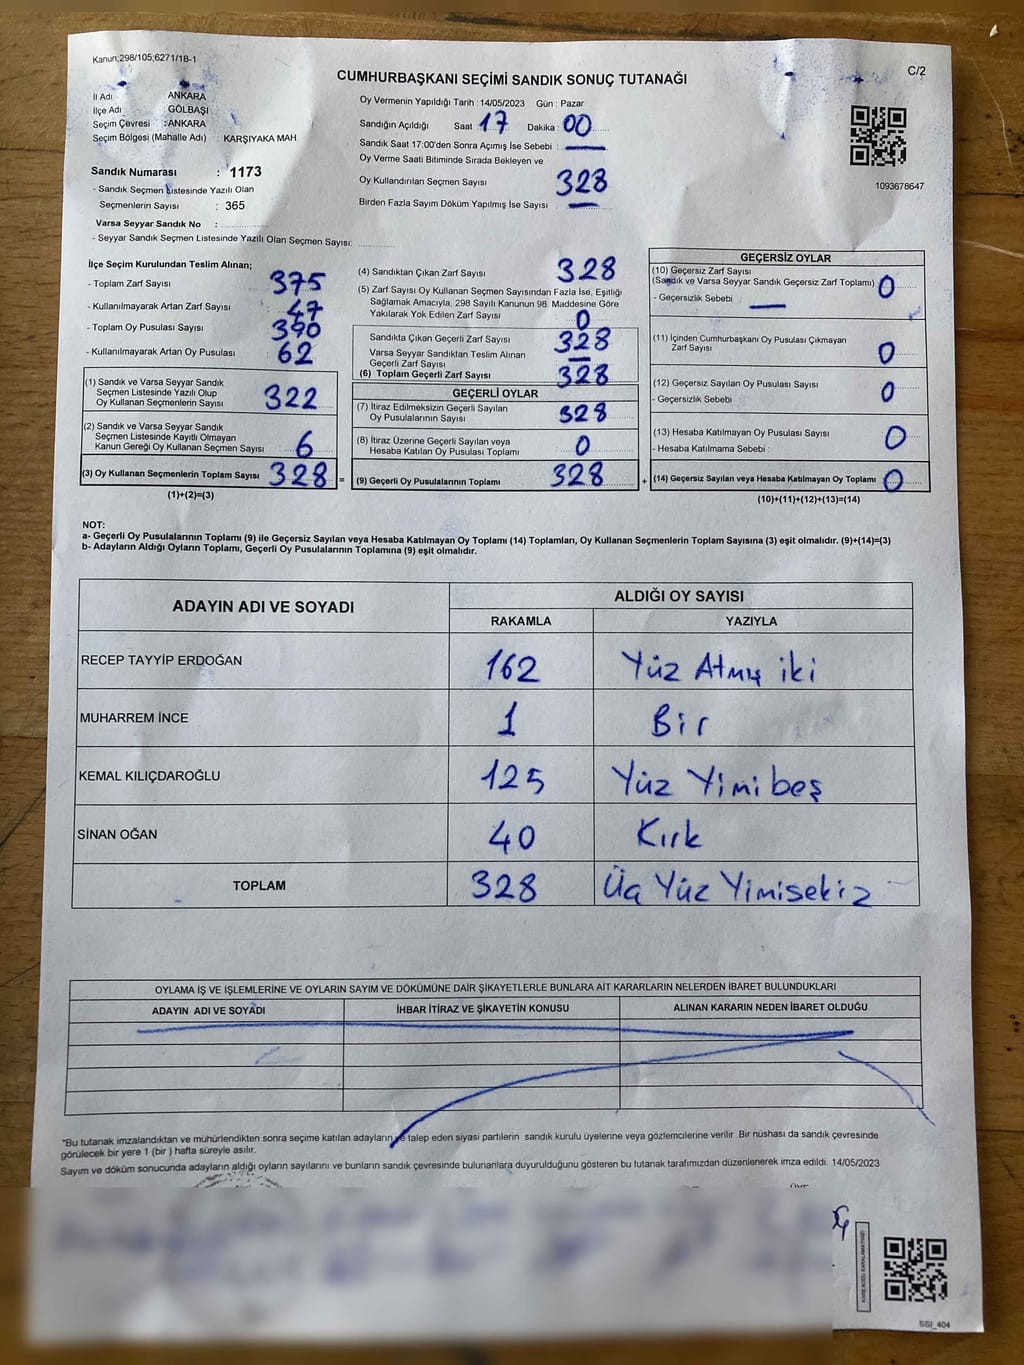 Kanun;298/105,6271/18-1
CUMHURBAŞKANI SEÇİMİ SANDIK SONUÇ TUTANAĞI
C/2
İl Adı ANKARA
İlçe Adı GÖLBAŞI
Seçim Çevresi : ANKARA
Seçim Bölgesi (Mahalle Adı) : KARŞIYAKA MAH.
Sandık Numarası : 1173
- Sandık Seçmen Listesinde Yazılı Olan
Seçmenlerin Sayısı : 365
Varsa Seyyar Sandık No :
- Seyyar Sandık Seçmen Listesinde Yazılı Olan Seçmen Sayısı:
Oy Vermenin Yapıldığı Tarih : 14/05/2023 Gün : Pazar
Sandığın Açıldığı Saat 17 Dakika 00
Sandık Saat 17:00'den Sonra Açımış İse Sebebi :
Oy Verme Saati Bitiminde Sırada Bekleyen ve
Oy Kullandırılan Seçmen Sayısı 328
Birden Fazla Sayım Döküm Yapılmış İse Sayısı :
1093678647
İlçe Seçim Kurulundan Teslim Alınan;
- Toplam Zarf Sayısı 375
- Kullanılmayarak Artan Zarf Sayısı 47
- Toplam Oy Pusulası Sayısı 390
- Kullanılmayarak Artan Oy Pusulası 62
(1) Sandık ve Varsa Seyyar Sandık
Seçmen Listesinde Yazılı Olup
Oy Kullanan Seçmenlerin Sayısı 322
(2) Sandık ve Varsa Seyyar Sandık
Seçmen Listesinde Kayıtlı Olmayan
Kanun Gereği Oy Kullanan Seçmen Sayısı 6
(3) Oy Kullanan Seçmenlerin Toplam Sayısı 328 =
(1)+(2)=(3)
(4) Sandıktan Çıkan Zarf Sayısı 328
(5) Zarf Sayısı Oy Kullanan Seçmen Sayısından Fazla İse, Eşitliği
Sağlamak Amacıyla, 298 Sayılı Kanunun 98. Maddesine Göre
Yakılarak Yok Edilen Zarf Sayısı 0
Sandıkta Çıkan Geçerli Zarf Sayısı 328
Varsa Seyyar Sandıktan Teslim Alınan
Geçerli Zarf Sayısı
(6) Toplam Geçerli Zarf Sayısı 328
GEÇERLİ OYLAR
(7) İtiraz Edilmeksizin Geçerli Sayılan
Oy Pusulalarının Sayısı 328
(8) İtiraz Üzerine Geçerli Sayılan veya
Hesaba Katılan Oy Pusulası Toplamı 0
(9) Geçerli Oy Pusulalarının Toplamı 328 +
GEÇERSİZ OYLAR
(10) Geçersiz Zarf Sayısı
(Sandık ve Varsa Seyyar Sandık Geçersiz Zarf Toplamı) 0
- Geçersizlik Sebebi :
(11) İçinden Cumhurbaşkanı Oy Pusulası Çıkmayan
Zarf Sayısı 0
(12) Geçersiz Sayılan Oy Pusulası Sayısı 0
- Geçersizlik Sebebi :
(13) Hesaba Katılmayan Oy Pusulası Sayısı 0
- Hesaba Katılmama Sebebi :
(14) Geçersiz Sayılan veya Hesaba Katılmayan Oy Toplamı 0
(10)+(11)+(12)+(13)=(14)
NOT:
a- Geçerli Oy Pusulalarının Toplamı (9) ile Geçersiz Sayılan veya Hesaba Katılmayan Oy Toplamı (14) Toplamları, Oy Kullanan Seçmenlerin Toplam Sayısına (3) eşit olmalıdır. (9)+(14)=(3)
b- Adayların Aldığı Oyların Toplamı, Geçerli Oy Pusulalarının Toplamına (9) eşit olmalıdır.
ADAYIN ADI VE SOYADI ALDIĞI OY SAYISI
RAKAMLA YAZIYLA
RECEP TAYYİP ERDOĞAN 162 Yüz Atmış iki
MUHARREM İNCE 1 Bir
KEMAL KILIÇDAROĞLU 125 Yüz Yimi beş
SİNAN OĞAN 40 Kırk
TOPLAM 328 Üç Yüz Yimisekiz
OYLAMA İŞ VE İŞLEMLERİNE VE OYLARIN SAYIM VE DÖKÜMÜNE DAİR ŞİKAYETLERLE BUNLARA AİT KARARLARIN NELERDEN İBARET BULUNDUKLARI
ADAYIN ADI VE SOYADI İHBAR İTİRAZ VE ŞİKAYETİN KONUSU ALINAN KARARIN NEDEN İBARET OLDUĞU
"Bu tutanak imzalandıktan ve mühürlendikten sonra seçime katılan adayların ve talep eden siyasi partilerin sandık kurulu üyelerine veya gözlemcilerine verilir .Bir nüshası da sandık çevresinde
görülecek bir yere 1 (bir ) hafta süreyle asılır.
Sayım ve döküm sonucunda adayların aldığı oyların sayılarını ve bunların sandık çevresinde bulunanlara duyurulduğunu gösteren bu tutanak tarafımızdan düzenlenerek imza edildi. 14/05/2023
SSI_404